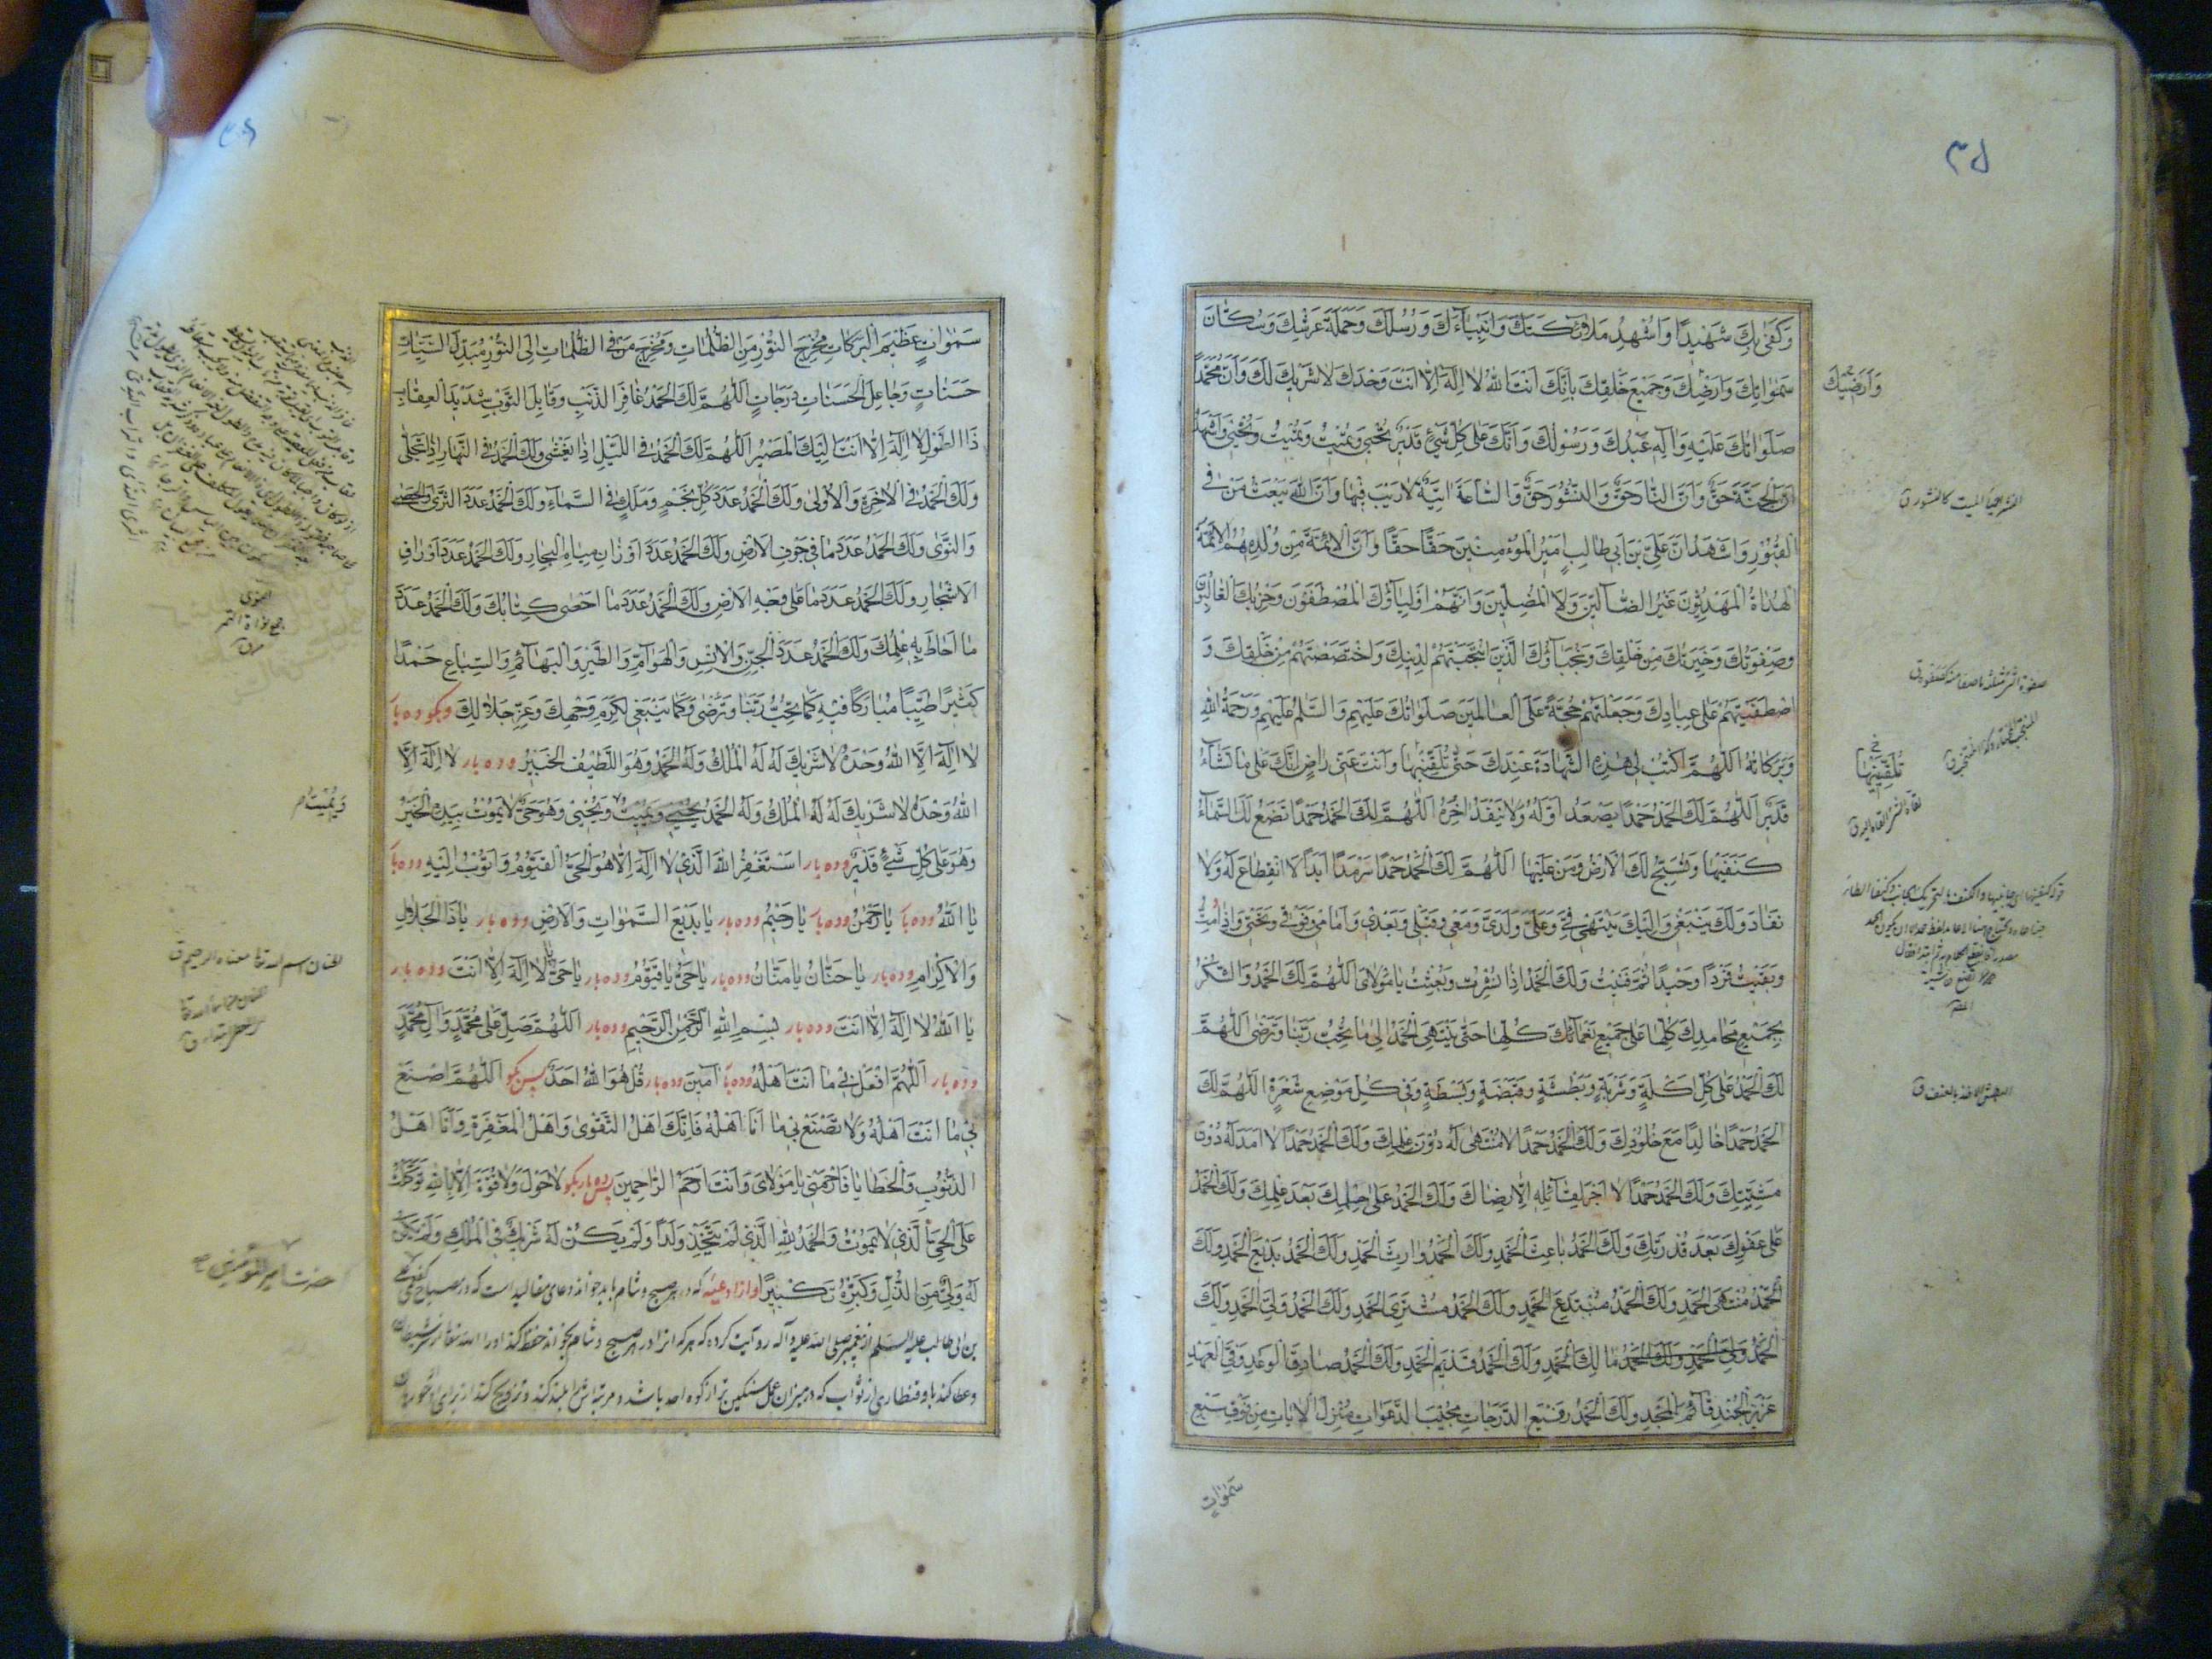 ۳۵
وَكَفىٰ بِكَ شَهيدًا وَاُشْهِدُ مَلائِكَتَكَ وَاَنْبِياءَكَ وَرُسُلَكَ وَحَمَلَةَ عَرْشِكَ وَسُكّانَ
سَمٰوٰاتِكَ وَاَرْضِكَ وَجَميعَ خَلْقِكَ بِاَنَّكَ اَنْتَ اللهُ لا اِلٰهَ اِلّا اَنْتَ وَحْدَكَ لا شَريكَ لَكَ وَاَنَّ مُحَمَّدًا
صَلَواتُكَ عَلَيْهِ وَاٰلِهِ عَبْدُكَ وَرَسُولُكَ وَاَنَّكَ عَلىٰ كُلِّ شَيْءٍ قَديرٌ تُحْيي وَتُميتُ وَتُميتُ وَتُحْيي وَاَشْهَدُ
اَنَّ الْجَنَّةَ حَقٌّ وَاَنَّ النّارَ حَقٌّ وَالنُّشُورَ حَقٌّ وَالسّاعَةَ اٰتِيَةٌ لا رَيْبَ فيها وَاَنَّ اللهَ يَبْعَثُ مَنْ فِي
الْقُبُورِ وَاَشْهَدُ اَنَّ عَلِيَّ بْنَ اَبي طالِبٍ اَميرُ الْمُؤْمِنينَ حَقًّا حَقًّا وَاَنَّ الْاَئِمَّةَ مِنْ وُلْدِهِ هُمُ الْاَئِمَّةُ
الْهُداةُ الْمَهْدِيُّونَ غَيْرُ الضّالّينَ وَلَا الْمُضِلّينَ وَاَنَّهُمْ اَوْلِياؤُكَ الْمُصْطَفَوْنَ وَحِزْبُكَ الْغالِبُونَ
وَصِفْوَتُكَ وَخِيَرَتُكَ مِنْ خَلْقِكَ وَنُجَباؤُكَ الَّذينَ انْتَجَبْتَهُمْ لِدينِكَ وَاخْتَصَصْتَهُمْ مِنْ خَلْقِكَ وَ
اصْطَفَيْتَهُمْ عَلىٰ عِبادِكَ وَجَعَلْتَهُمْ حُجَّةً عَلَى الْعالَمينَ صَلَواتُكَ عَلَيْهِمْ وَالسَّلٰمُ عَلَيْهِمْ وَرَحْمَةُ اللهِ
وَبَرَكاتُهُ اَللّٰهُمَّ اكْتُبْ لي هٰذِهِ الشَّهادَةَ عِنْدَكَ حَتّىٰ تُلَقِّنَنيها وَاَنْتَ عَنّي راضٍ اِنَّكَ عَلىٰ ما تَشاءُ
قَديرٌ اَللّٰهُمَّ لَكَ الْحَمْدُ حَمْدًا يَصْعَدُ اَوَّلُهُ وَلا يَنْفَدُ اٰخِرُهُ اَللّٰهُمَّ لَكَ الْحَمْدُ حَمْدًا تَضَعُ لَكَ السَّماءُ
كَنَفَيْها وَتُسَبِّحُ لَكَ الْاَرْضُ وَمَنْ عَلَيْها اَللّٰهُمَّ لَكَ الْحَمْدُ حَمْدًا سَرْمَدًا اَبَدًا لَا انْقِطاعَ لَهُ وَلا
نَفادَ وَلَكَ يَنْبَغي وَاِلَيْكَ يَنْتَهي فِيَّ وَعَلَيَّ وَلَدَيَّ وَمَعي وَقَبْلي وَبَعْدي وَاَمامي وَفَوْقي وَتَحْتي وَاِذا مُتُّ
وَبَقيتُ فَرْدًا وَحيدًا ثُمَّ فَنيتُ وَلَكَ الْحَمْدُ اِذا نُشِرْتُ وَبُعِثْتُ يا مَوْلايَ اَللّٰهُمَّ لَكَ الْحَمْدُ وَالشُّكْرُ
بِجَميعِ مَحامِدِكَ كُلِّها عَلىٰ جَميعِ نَعْمائِكَ كُلِّها حَتّىٰ يَنْتَهِيَ الْحَمْدُ اِلىٰ ما تُحِبُّ رَبَّنا وَتَرْضىٰ اَللّٰهُمَّ
لَكَ الْحَمْدُ عَلىٰ كُلِّ اَكْلَةٍ وَشَرْبَةٍ وَبَطْشَةٍ وَقَبْضَةٍ وَبَسْطَةٍ وَفي كُلِّ مَوْضِعِ شَعْرَةٍ اَللّٰهُمَّ لَكَ
الْحَمْدُ حَمْدًا خالِدًا مَعَ خُلُودِكَ وَلَكَ الْحَمْدُ حَمْدًا لا مُنْتَهىٰ لَهُ دُونَ عِلْمِكَ وَلَكَ الْحَمْدُ حَمْدًا لا اَمَدَ لَهُ دُونَ
مَشِيَّتِكَ وَلَكَ الْحَمْدُ حَمْدًا لا اَجْرَ لِقائِلِهِ اِلّا رِضاكَ وَلَكَ الْحَمْدُ عَلىٰ حِلْمِكَ بَعْدَ عِلْمِكَ وَلَكَ الْحَمْدُ
عَلىٰ عَفْوِكَ بَعْدَ قُدْرَتِكَ وَلَكَ الْحَمْدُ باعِثَ الْحَمْدِ وَلَكَ الْحَمْدُ وارِثَ الْحَمْدِ وَلَكَ الْحَمْدُ بَديعَ الْحَمْدِ وَلَكَ
الْحَمْدُ مُنْتَهَى الْحَمْدِ وَلَكَ الْحَمْدُ مُبْتَدِعَ الْحَمْدِ وَلَكَ الْحَمْدُ مُشْتَرِيَ الْحَمْدِ وَلَكَ الْحَمْدُ وَلِيَّ الْحَمْدِ وَلَكَ
الْحَمْدُ وَلِيَّ الْحَمْدِ وَلَكَ الْحَمْدُ مالِكَ الْحَمْدِ وَلَكَ الْحَمْدُ قَديمَ الْحَمْدِ وَلَكَ الْحَمْدُ صادِقَ الْوَعْدِ وَفِيَّ الْعَهْدِ
عَزيزَ الْجُنْدِ قائِمَ الْمَجْدِ وَلَكَ الْحَمْدُ رَفيعَ الدَّرَجاتِ مُجيبَ الدَّعَواتِ مُنْزِلَ الْاٰياتِ مِنْ فَوْقِ سَبْعِ
سَمٰوٰاتٍ
وَاَرَضيكَ
تُلَقِّنَنيها
سَمٰوٰاتٍ عَظيمَ الْبَرَكاتِ مُخْرِجَ النُّورِ مِنَ الظُّلُماتِ وَمُخْرِجَ مَنْ فِي الظُّلُماتِ اِلَى النُّورِ مُبَدِّلَ السَّيِّئاتِ
حَسَناتٍ وَجاعِلَ الْحَسَناتِ دَرَجاتٍ اَللّٰهُمَّ لَكَ الْحَمْدُ غافِرَ الذَّنْبِ وَقابِلَ التَّوْبِ شَديدَ الْعِقابِ
ذَا الطَّوْلِ لا اِلٰهَ اِلّا اَنْتَ اِلَيْكَ الْمَصيرُ اَللّٰهُمَّ لَكَ الْحَمْدُ فِي اللَّيْلِ اِذا يَغْشىٰ وَلَكَ الْحَمْدُ فِي النَّهارِ اِذا تَجَلّىٰ
وَلَكَ الْحَمْدُ فِي الْاٰخِرَةِ وَالْاُولىٰ وَلَكَ الْحَمْدُ عَدَدَ كُلِّ نَجْمٍ وَمَلَكٍ فِي السَّماءِ وَلَكَ الْحَمْدُ عَدَدَ الثَّرىٰ وَالْحَصىٰ
وَالنَّوىٰ وَلَكَ الْحَمْدُ عَدَدَ ما في جَوْفِ الْاَرْضِ وَلَكَ الْحَمْدُ عَدَدَ اَوْزانِ مِياهِ الْبِحارِ وَلَكَ الْحَمْدُ عَدَدَ اَوْراقِ
الْاَشْجارِ وَلَكَ الْحَمْدُ عَدَدَ ما عَلىٰ وَجْهِ الْاَرْضِ وَلَكَ الْحَمْدُ عَدَدَ ما اَحْصىٰ كِتابُكَ وَلَكَ الْحَمْدُ عَدَدَ
ما اَحاطَ بِهِ عِلْمُكَ وَلَكَ الْحَمْدُ عَدَدَ الْجِنِّ وَالْاِنْسِ وَالْهَوامِّ وَالطَّيْرِ وَالْبَهائِمِ وَالسِّباعِ حَمْدًا
كَثيرًا طَيِّبًا مُبارَكًا فيهِ كَما تُحِبُّ رَبَّنا وَتَرْضىٰ وَكَما يَنْبَغي لِكَرَمِ وَجْهِكَ وَعِزِّ جَلالِكَ وبگو ده بار
لا اِلٰهَ اِلَّا اللهُ وَحْدَهُ لا شَريكَ لَهُ لَهُ الْمُلْكُ وَلَهُ الْحَمْدُ وَهُوَ اللَّطيفُ الْخَبيرُ وده بار لا اِلٰهَ اِلَّا
اللهُ وَحْدَهُ لا شَريكَ لَهُ لَهُ الْمُلْكُ وَلَهُ الْحَمْدُ يُحْيي وَيُميتُ وَيُحْيي وَهُوَ حَيٌّ لا يَمُوتُ بِيَدِهِ الْخَيْرُ
وَهُوَ عَلىٰ كُلِّ شَيْءٍ قَديرٌ وده بار اَسْتَغْفِرُ اللهَ الَّذي لا اِلٰهَ اِلّا هُوَ الْحَيُّ الْقَيُّومُ وَاَتُوبُ اِلَيْهِ وده بار
يا اَللهُ وده بار يا رَحْمٰنُ وده بار يا رَحيمُ وده بار يا بَديعَ السَّمٰواتِ وَالْاَرْضِ وده بار يا ذَا الْجَلالِ
وَالْاِكْرامِ وده بار يا حَنّانُ يا مَنّانُ وده بار يا حَيُّ يا قَيُّومُ وده بار يا حَيُّ لا اِلٰهَ اِلّا اَنْتَ وده بار
يا اَللهُ لا اِلٰهَ اِلّا اَنْتَ وده بار بِسْمِ اللهِ الرَّحْمٰنِ الرَّحيمِ وده بار اَللّٰهُمَّ صَلِّ عَلىٰ مُحَمَّدٍ وَاٰلِ مُحَمَّدٍ
وده بار اَللّٰهُمَّ افْعَلْ بي ما اَنْتَ اَهْلُهُ وده بار اٰمينَ وده بار قُلْ هُوَ اللهُ اَحَدٌ پس بگو اَللّٰهُمَّ اصْنَعْ
بي ما اَنْتَ اَهْلُهُ وَلا تَصْنَعْ بي ما اَنَا اَهْلُهُ فَاِنَّكَ اَهْلُ التَّقْوىٰ وَاَهْلُ الْمَغْفِرَةِ وَاَنَا اَهْلُ
الذُّنُوبِ وَالْخَطايا فَارْحَمْني يا مَوْلايَ وَاَنْتَ اَرْحَمُ الرّاحِمينَ پس ده بار بگو لا حَوْلَ وَلا قُوَّةَ اِلّا بِاللهِ تَوَكَّلْتُ
عَلَى الْحَيِّ الَّذي لا يَمُوتُ وَالْحَمْدُ لِلهِ الَّذي لَمْ يَتَّخِذْ وَلَدًا وَلَمْ يَكُنْ لَهُ شَريكٌ فِي الْمُلْكِ وَلَمْ يَكُنْ
لَهُ وَلِيٌّ مِنَ الذُّلِّ وَكَبِّرْهُ تَكْبيرًا واز ادعيه که در هر صبح وشام بايد خواند دعاى مقاليد است که در مصباح کفعمى
بن ابى طالب عليه السلام از پيغمبر صلى الله عليه وآله روايت کرده که هر که آنرا در هر صبح و شام بخواند حفظ کند او را الله تعالى از شر شيطان
وعطا کند باو قنطارى از ثواب که در ميزان عمل سنگين تر از کوه احد باشد و مرتبه اش را بلند کند و تزويج کند از براى او حوريان
جمع نواة التمر
وَيُميتُ
الحنان اسم الله تعا معناه الرحيم ق
حضرت امير المؤمنين